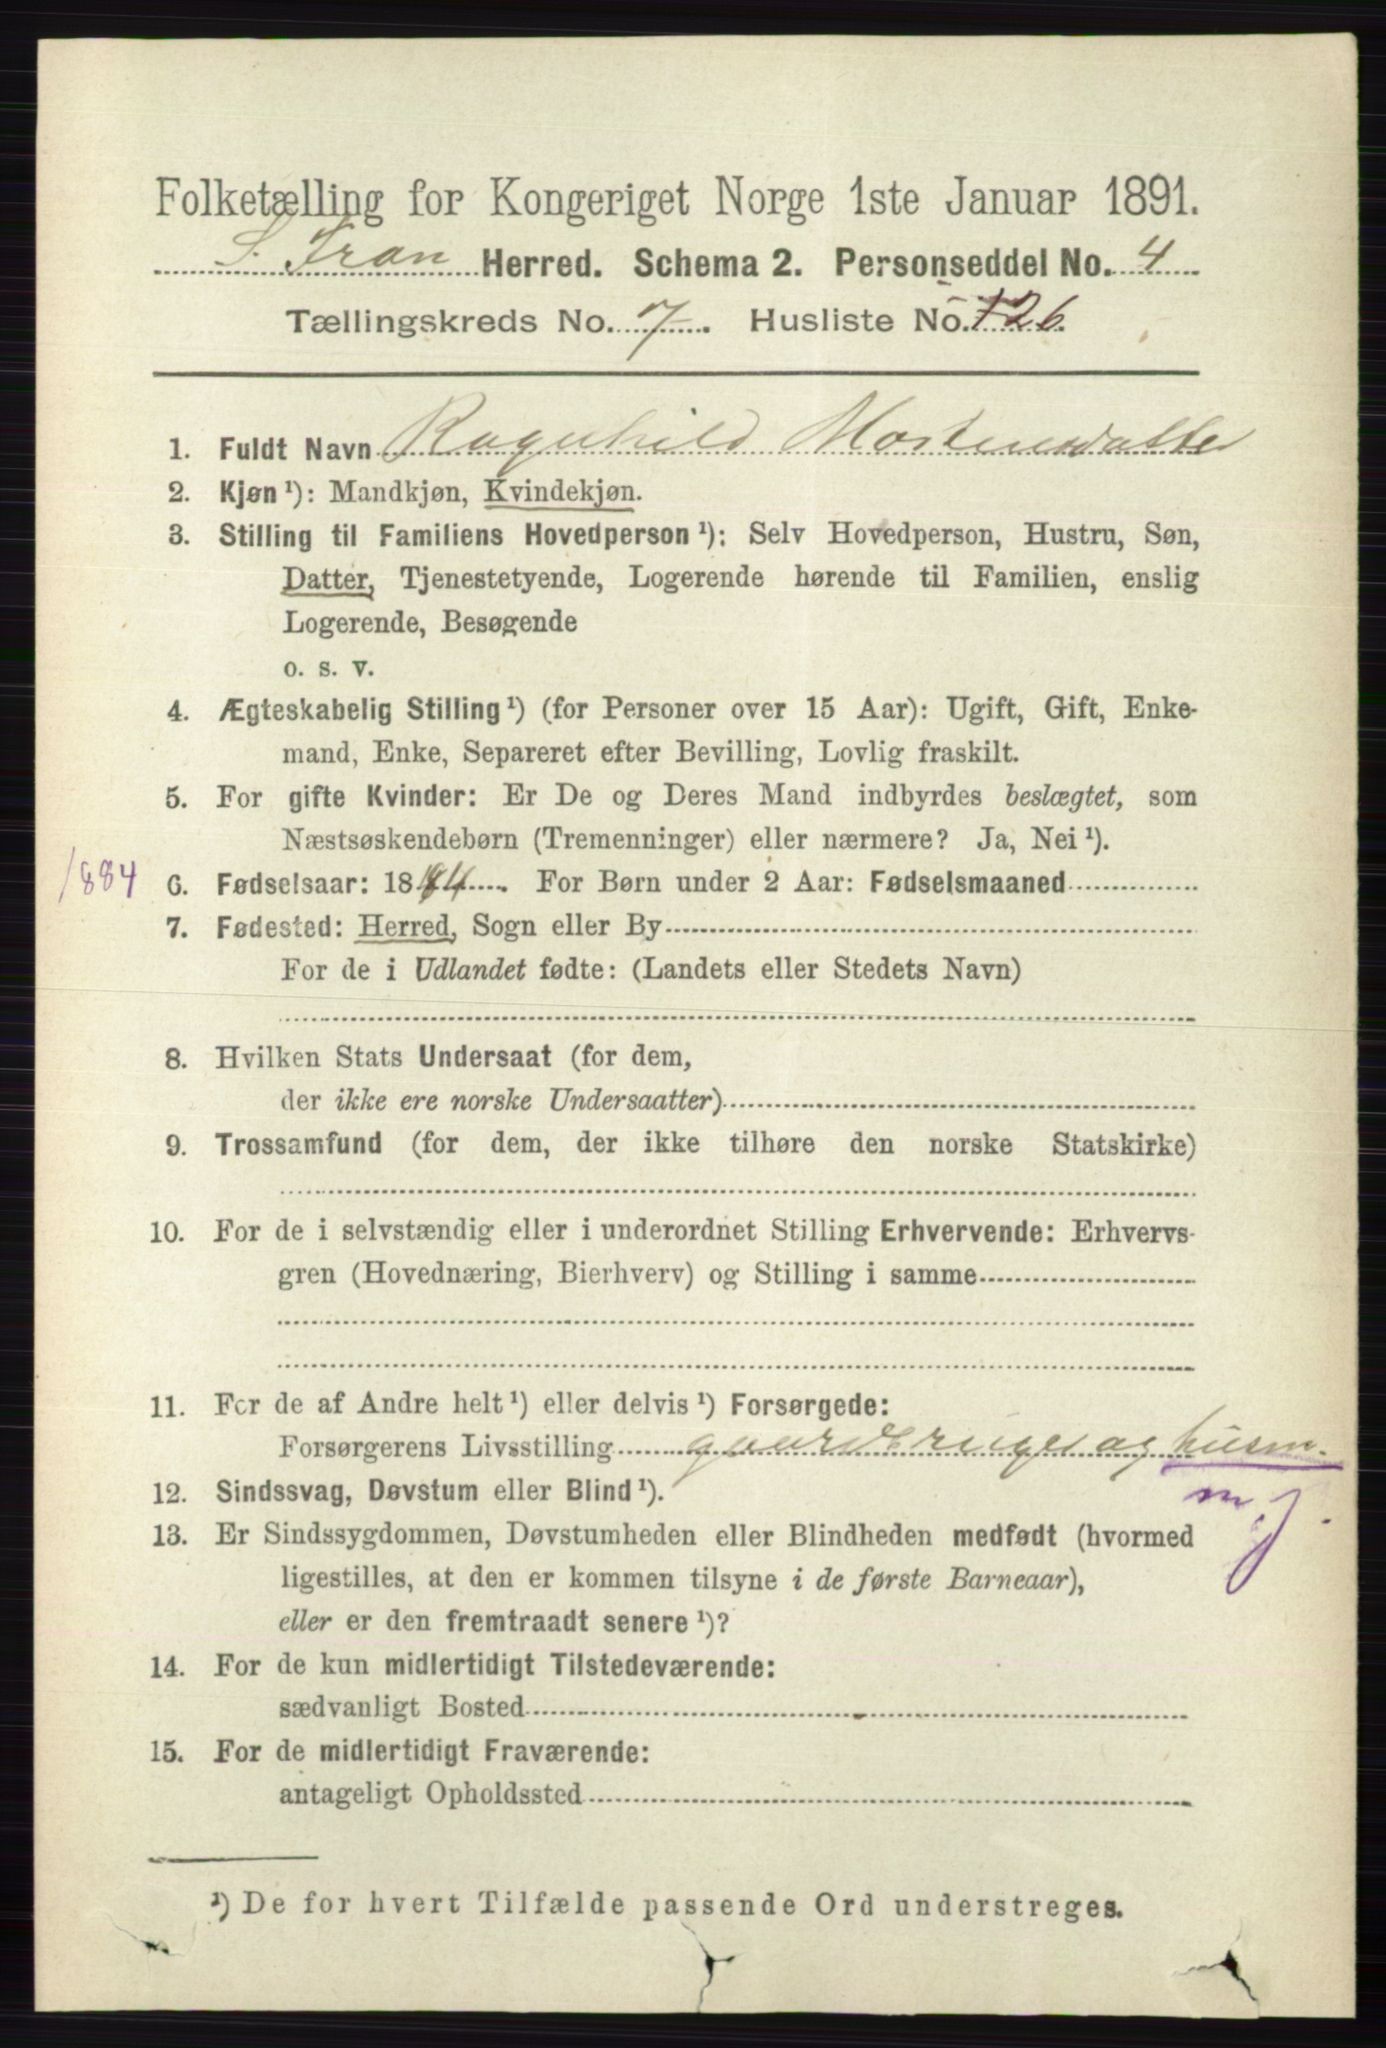 Folketælling for Kongeriget Norge 1ste Januar 1891.
S. Fron Herred. Schema 2. Personseddel No. 4
Tællingskreds No. 7. Husliste No. 126.
1. Fuldt Navn Ragnhild Mortensdatter
2. Kjøn ¹): Mandkjøn, Kvindekjøn.
3. Stilling til Familiens Hovedperson ¹): Selv Hovedperson, Hustru, Søn,
Datter, Tjenestetyende, Logerende hørende til Familien, enslig
Logerende, Besøgende
o. s. v.
4. Ægteskabelig Stilling ¹) (for Personer over 15 Aar): Ugift, Gift, Enke-
mand, Enke, Separeret efter Bevilling, Lovlig fraskilt.
5. For gifte Kvinder: Er De og Deres Mand indbyrdes beslægtet, som
Næstsøskendebørn (Tremenninger) eller nærmere? Ja, Nei ¹).
1884 6. Fødselsaar: 1884. For Børn under 2 Aar: Fødselsmaaned
7. Fødested: Herred, Sogn eller By
For de i Udlandet fødte: (Landets eller Stedets Navn)
8. Hvilken Stats Undersaat (for dem,
der ikke ere norske Undersaatter)
9. Trossamfund (for dem, der ikke tilhøre den norske Statskirke)
10. For de i selvstændig eller i underordnet Stilling Erhvervende: Erhvervs-
gren (Hovednæring, Bierhverv) og Stilling i samme
11. For de af Andre helt ¹) eller delvis ¹) Forsørgede:
Forsørgerens Livsstilling gaardbruger og husm.
m. j.
12. Sindssvag, Døvstum eller Blind ¹).
13. Er Sindssygdommen, Døvstumheden eller Blindheden medfødt (hvormed
ligestilles, at den er kommen tilsyne i de første Barneaar),
eller er den fremtraadt senere ¹)?
14. For de kun midlertidigt Tilstedeværende:
sædvanligt Bosted
15. For de midlertidigt Fraværende:
antageligt Opholdssted
¹) De for hvert Tilfælde passende Ord understreges.